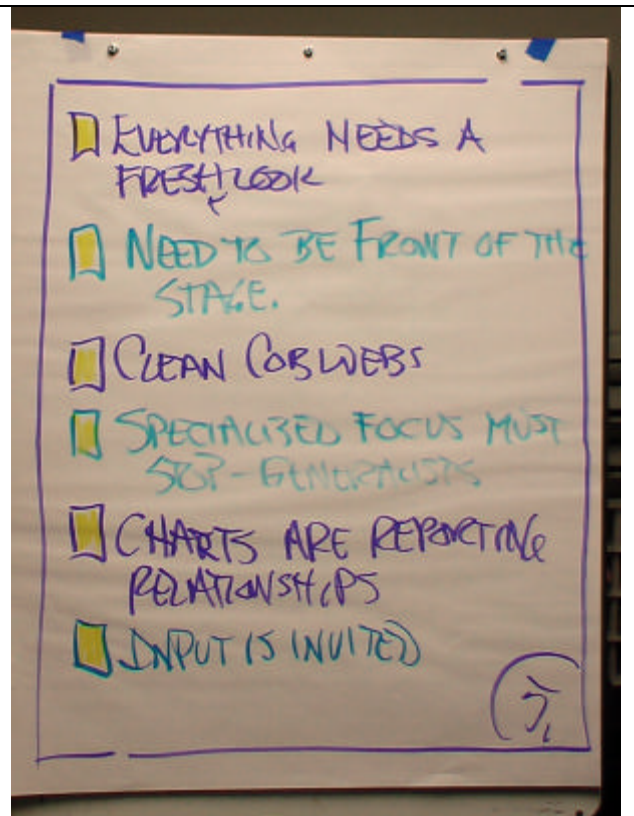 EVERYTHING NEEDS A
FRESH LOOK
NEED TO BE FRONT OF THE
STAGE.
CLEAN COBWEBS
SPECIALIZED FOCUS MUST
STOP - GENERALISTS
CHARTS ARE REPORTING
RELATIONSHIPS
INPUT IS INVITED